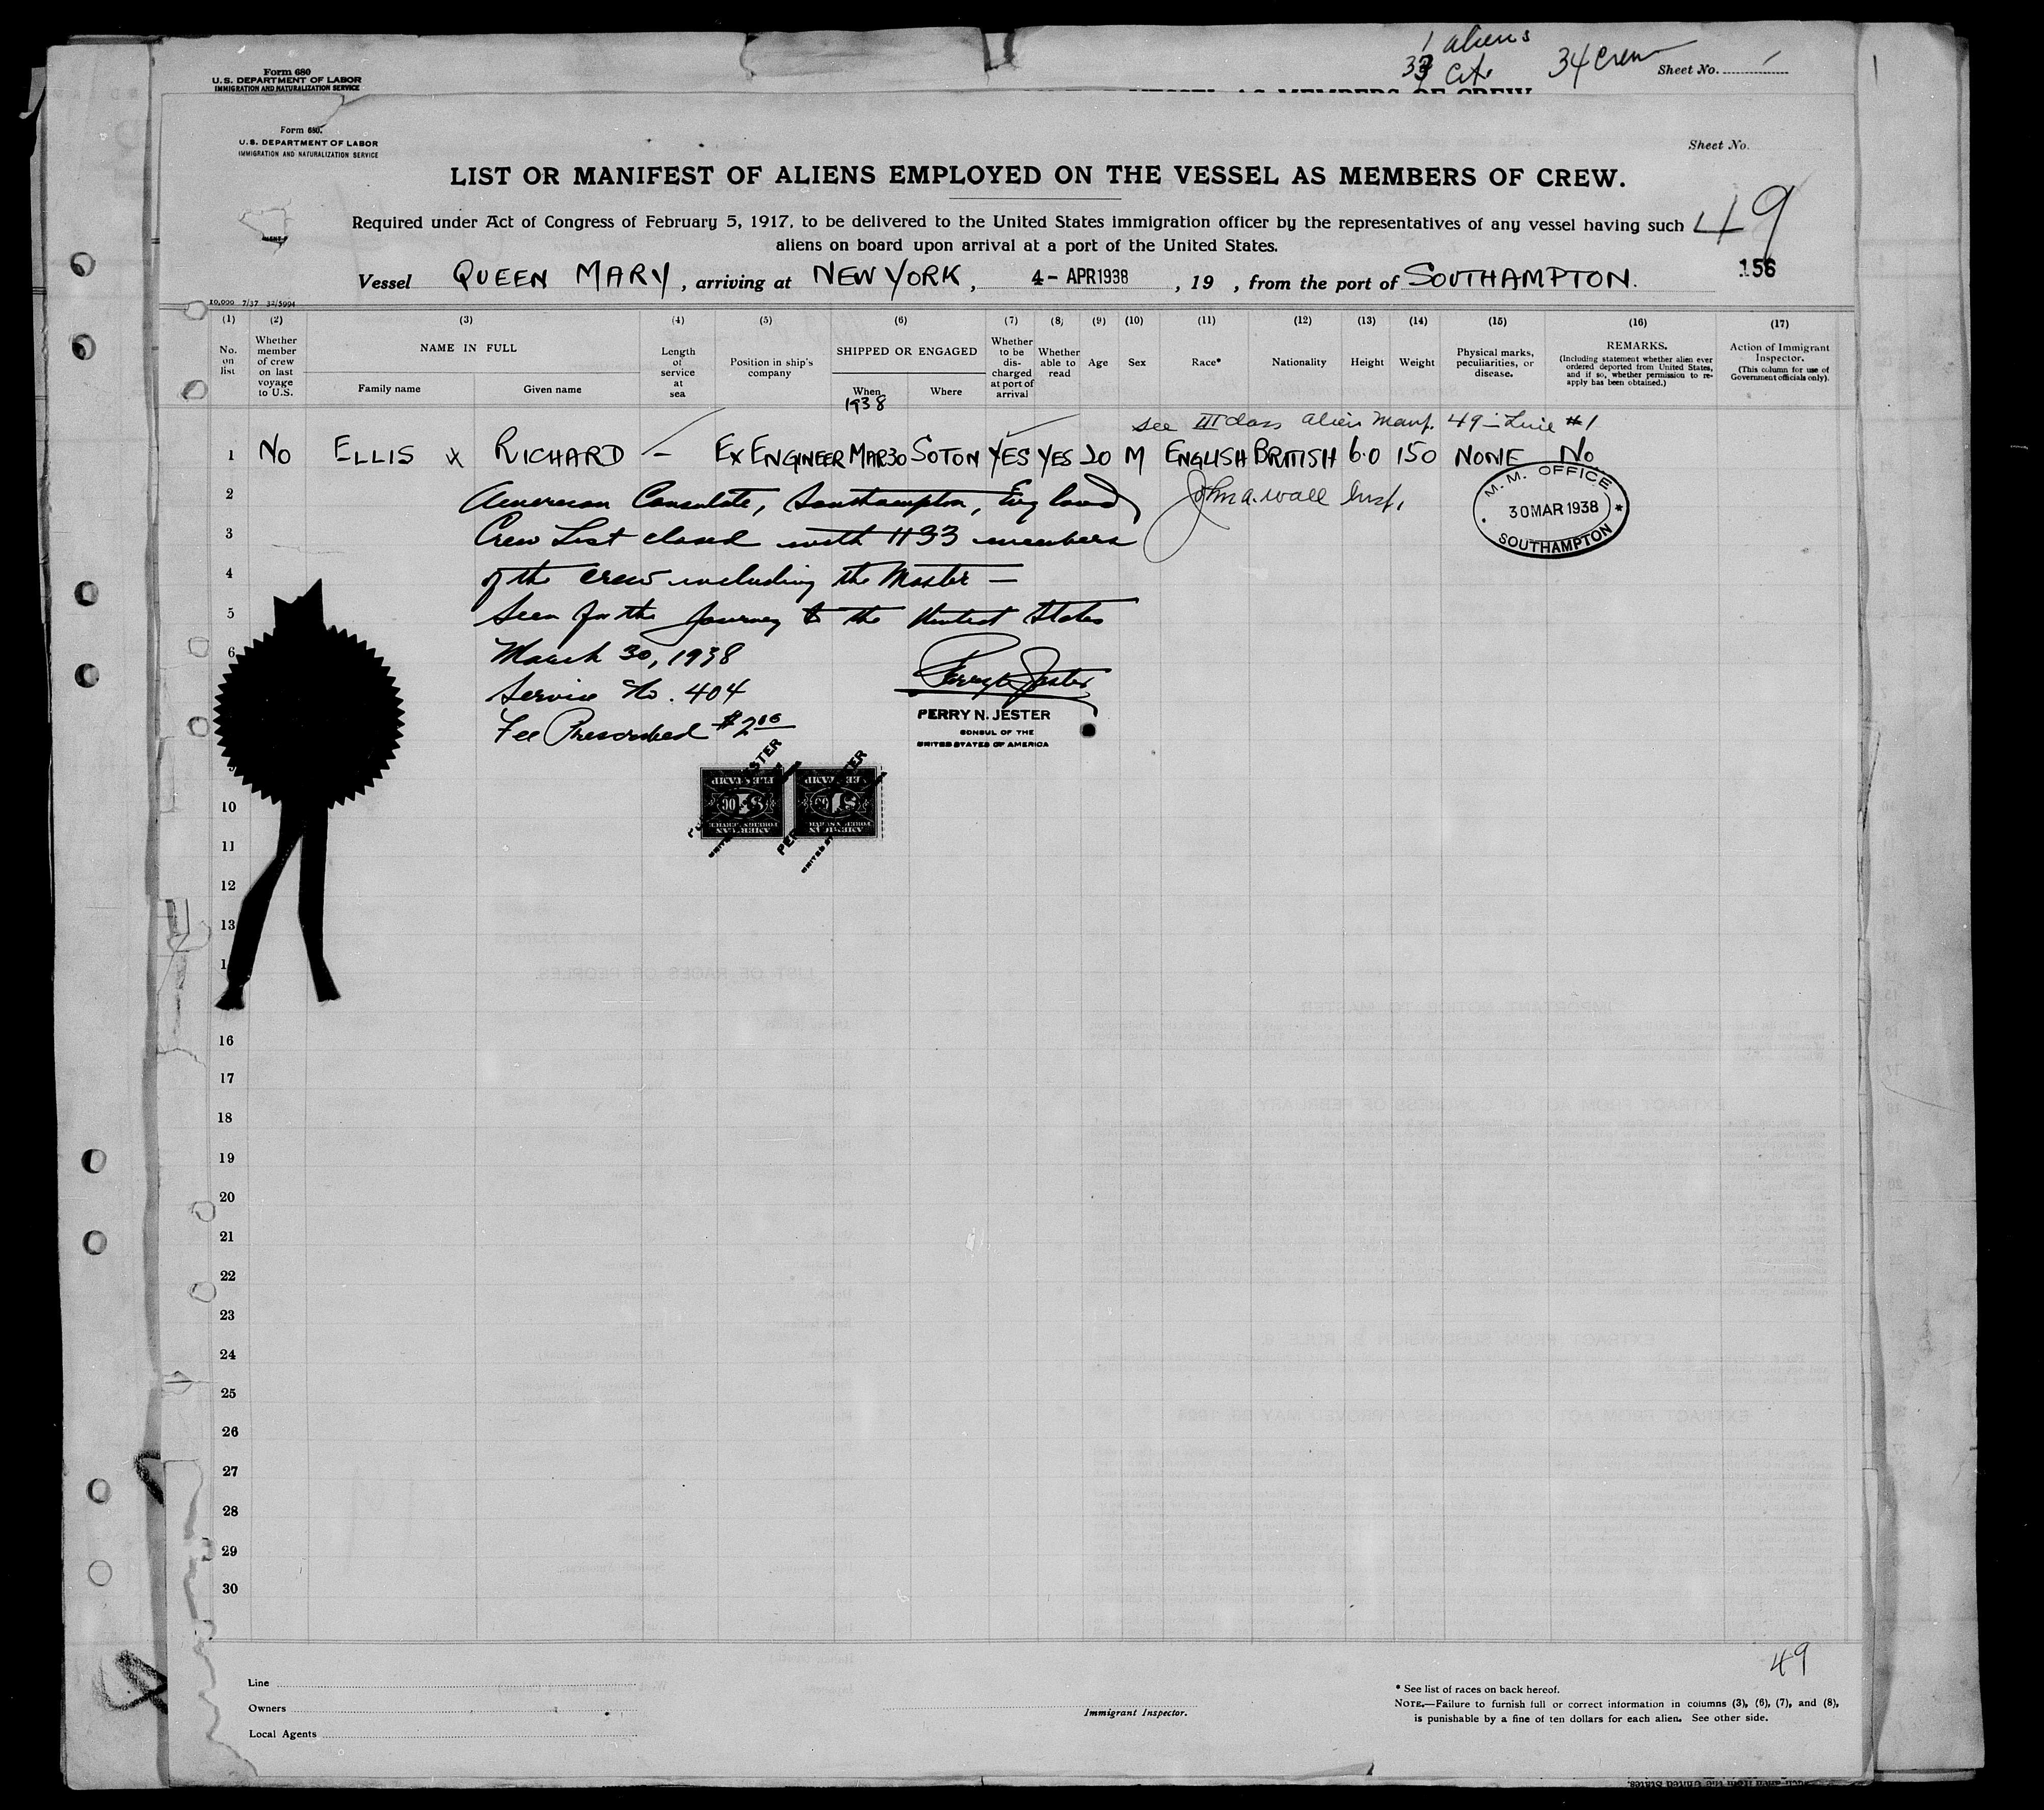 1 aliens
33 Cit.
34 Crew
Sheet No.
Form 680
U.S. DEPARTMENT OF LABOR
IMMIGRATION AND NATURALIZATION SERVICE
Form 680.
U.S. DEPARTMENT OF LABOR
IMMIGRATION AND NATURALIZATION SERVICE
Sheet No.
LIST OR MANIFEST OF ALIENS EMPLOYED ON THE VESSEL AS MEMBERS OF CREW.
49
Required under Act of Congress of February 5, 1917, to be delivered to the United States immigration officer by the representatives of any vessel having such
aliens on board upon arrival at a port of the United States.
156
Vessel QUEEN MARY, arriving at NEW YORK, 4- APR 1938, 19 , from the port of SOUTHAMPTON.
10,000 7/37 32/5994
(1) (2) (3) (4) (5) (6) (7) (8) (9) (10) (11) (12) (13) (14) (15) (16) (17)
No. on list
Whether member of crew on last voyage to U.S.
NAME IN FULL
Family name
Given name
Length of service at sea
Position in ship's company
SHIPPED OR ENGAGED
When
Where
1938
Whether to be discharged at port of arrival
Whether able to read
Age
Sex
Race*
Nationality
Height
Weight
Physical marks, peculiarities, or disease.
REMARKS.
(Including statement whether alien ever ordered deported from United States, and if so, whether permission to re-apply has been obtained.)
Action of Immigrant Inspector.
(This column for use of Government officials only).
see III class alien Manf. 49 - Line #1
1 NO ELLIS x RICHARD — EX ENGINEER MAR 30 SOTON YES YES 20 M ENGLISH BRITISH 6.0 150 NONE NO
2 American Consulate, Southampton, England
John A. Wall Insp.
M. M. OFFICE
30 MAR 1938
SOUTHAMPTON
3 Crew List closed with 1133 members
4 of the crew including the Master —
5 Seen for the journey to the United States
6 March 30, 1938
Service No. 404
Fee Prescribed $2.00
Perry N. Jester
PERRY N. JESTER
CONSUL OF THE
UNITED STATES OF AMERICA
10
11
12
13
16
17
18
19
20
21
22
23
24
25
26
27
28
29
30
49
Line
Owners
Local Agents
Immigrant Inspector.
* See list of races on back hereof.
NOTE.—Failure to furnish full or correct information in columns (3), (6), (7), and (8),
is punishable by a fine of ten dollars for each alien. See other side.